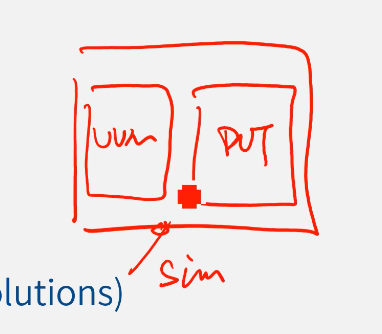 UVM
DUT
Sim
olutions)